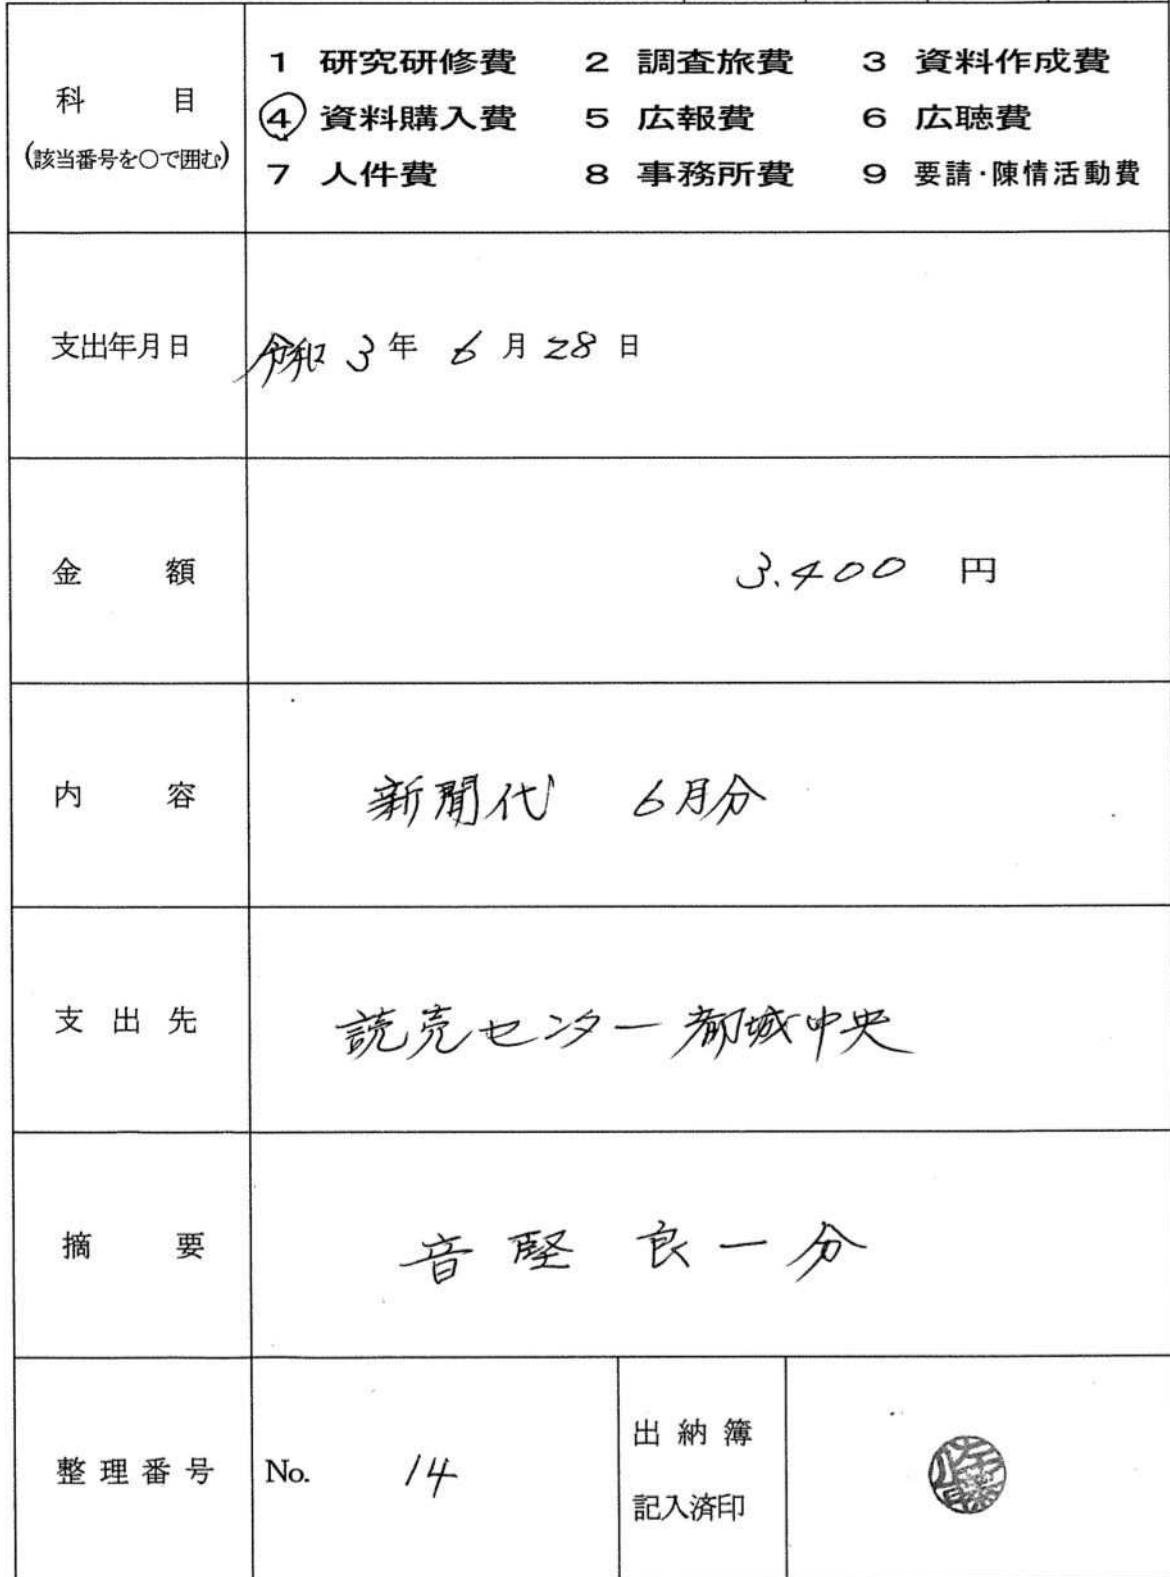 科 目
(該当番号を○で囲む)
1 研究研修費 2 調査旅費 3 資料作成費
4 資料購入費 5 広報費 6 広聴費
7 人件費 8 事務所費 9 要請・陳情活動費
支出年月日 令和 3 年 6 月 28 日
金 額 3.400 円
内 容 新聞代 6月分
支 出 先 読売センター都城中央
摘 要 音堅 良一分
整理番号 No. 14
出納簿
記入済印
佐藤